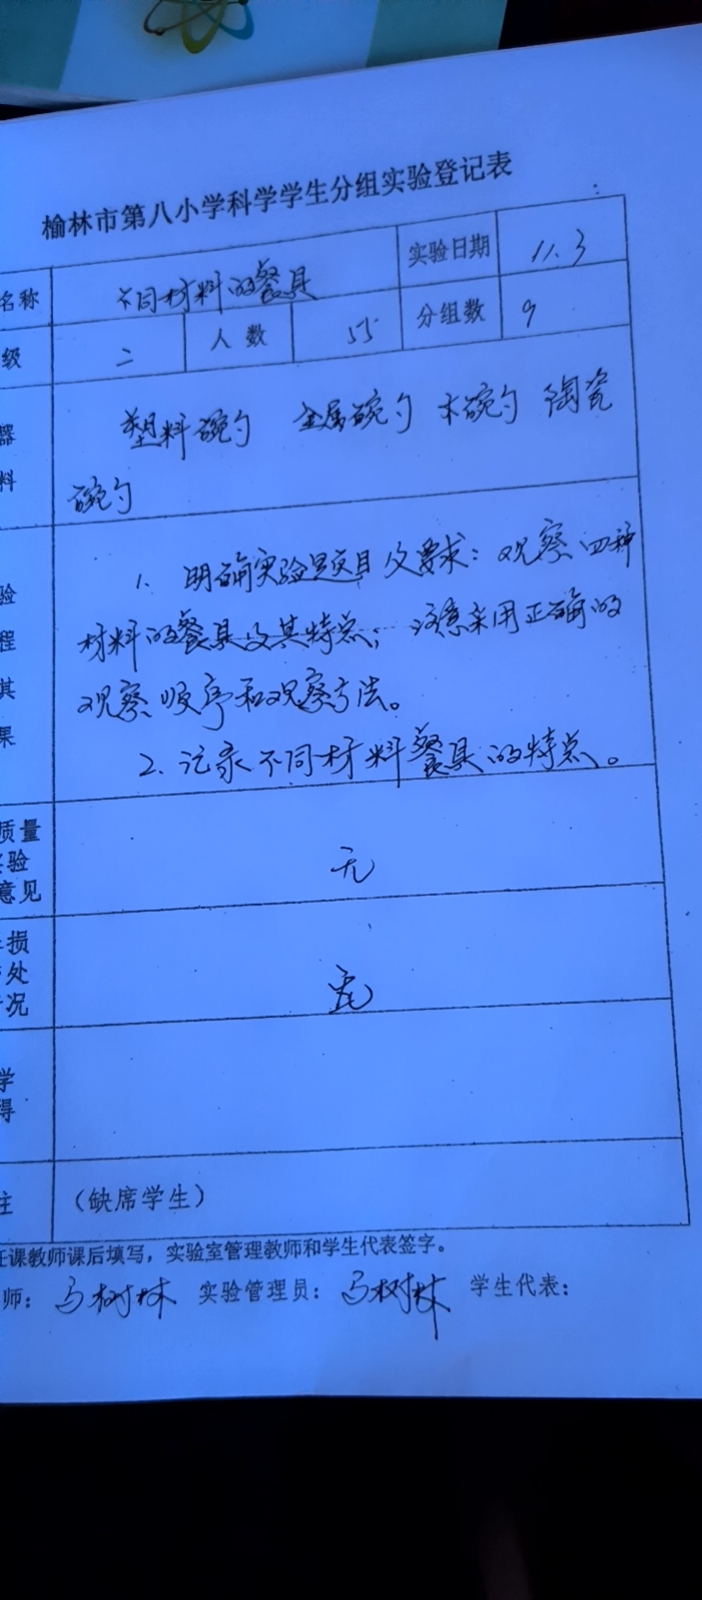 榆林市第八小学科学学生分组实验登记表
名称 不同材料的餐具 实验日期 11.3
级 二 人数 55 分组数 9
器 塑料碗勺 金属碗勺 木碗勺 陶瓷
料 碗勺
1. 明确实验题目及要求：观察四种
验
程 材料的餐具及其特点；注意采用正确的
其 观察顺序和观察方法。
果 2. 记录不同材料餐具的特点。
质量
验 无
意见
损
处 无
况
学
得
注 （缺席学生）
任课教师课后填写，实验室管理教师和学生代表签字。
师：马树林 实验管理员：马树林 学生代表：